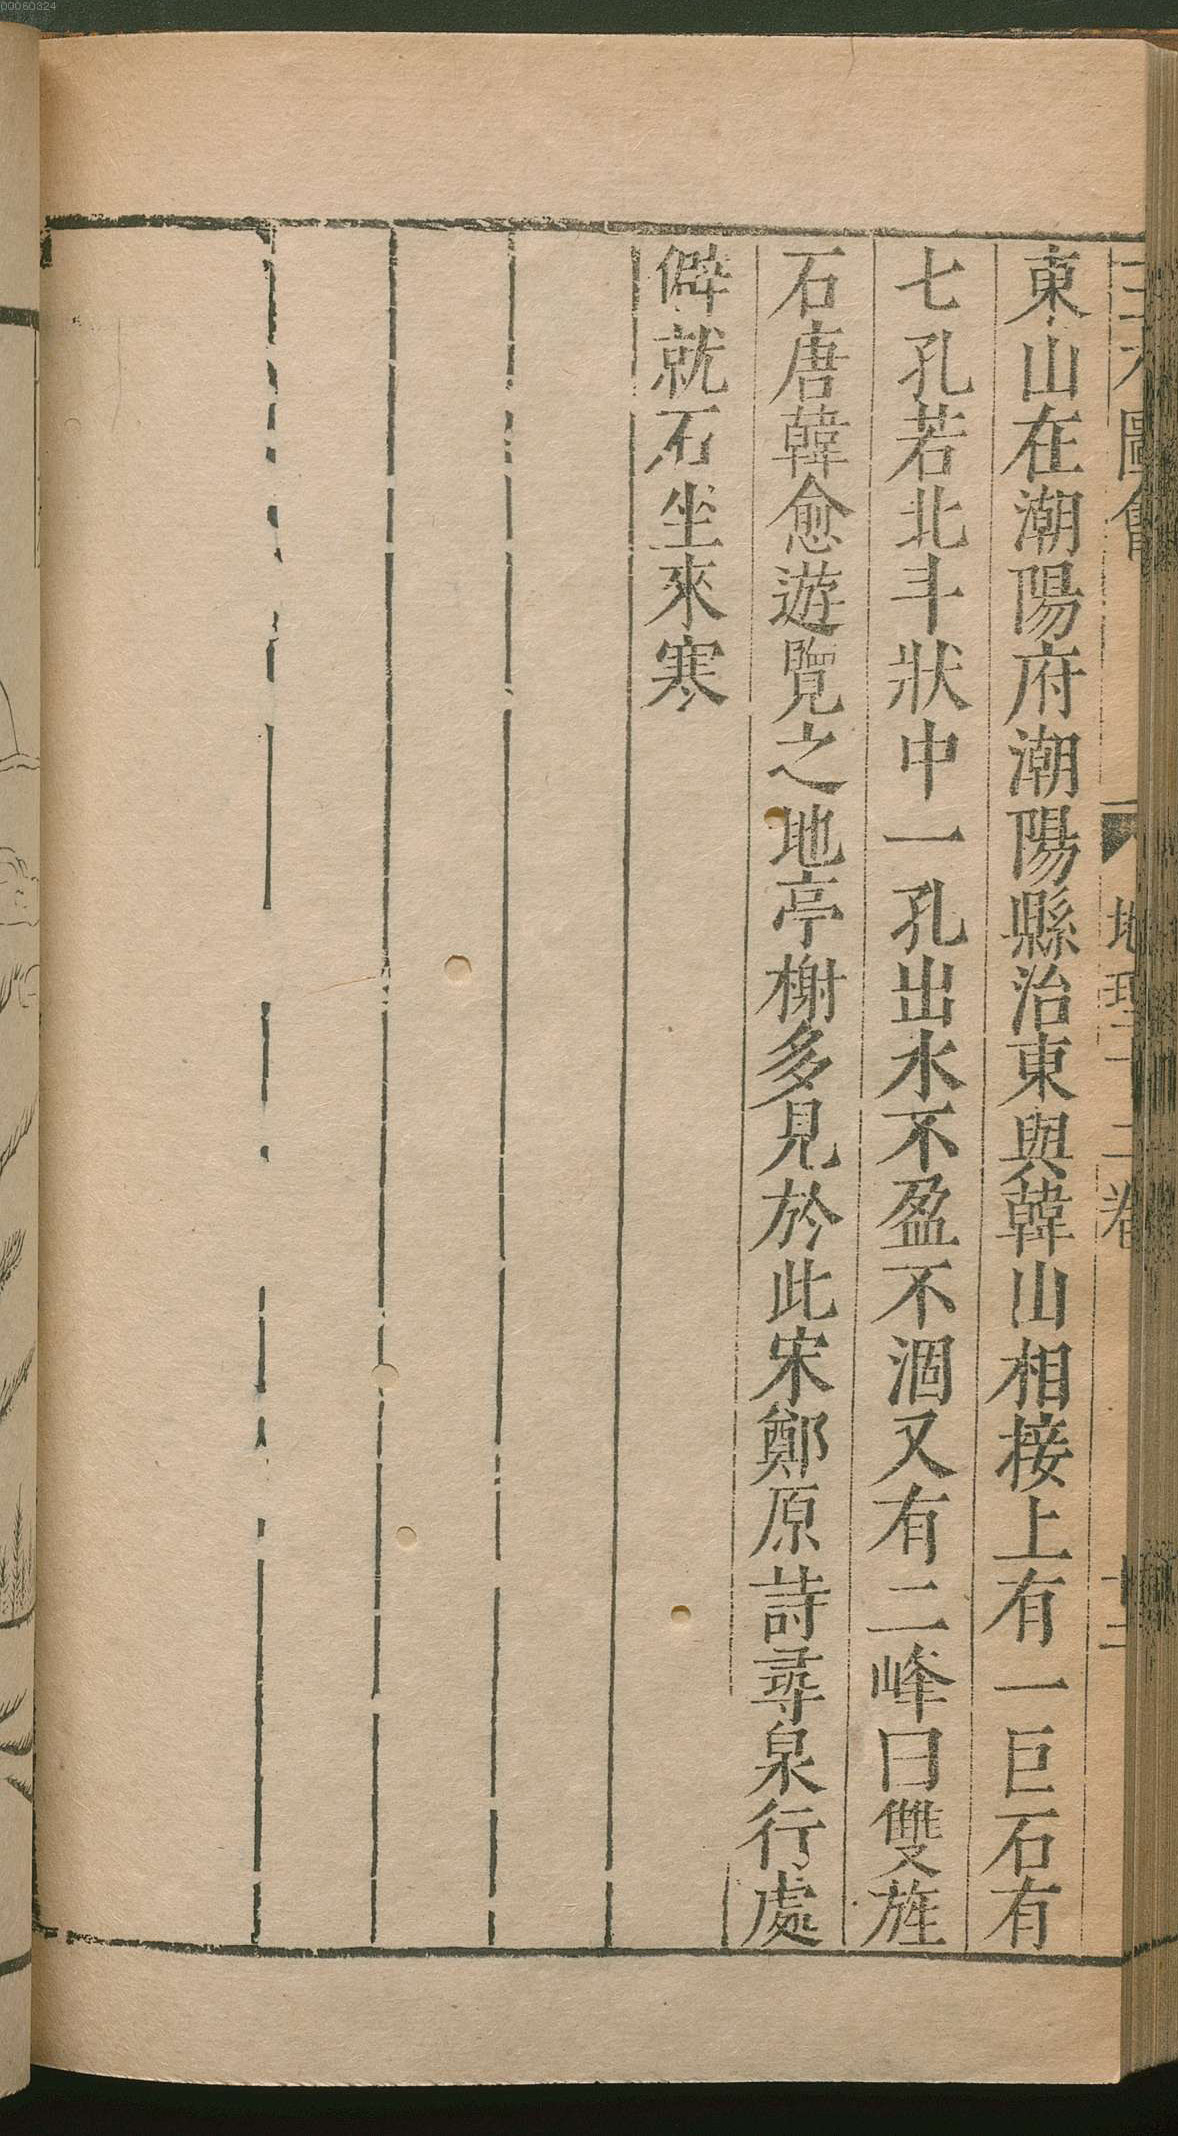 00060324
東山在潮陽府潮陽縣治東與韓山相接上有一巨石有
七孔若北斗狀中一孔出水不盈不涸又有二峰曰雙旌
石唐韓愈遊覽之地亭榭多見於此宋鄭原詩尋泉行處
僻就石坐來寒